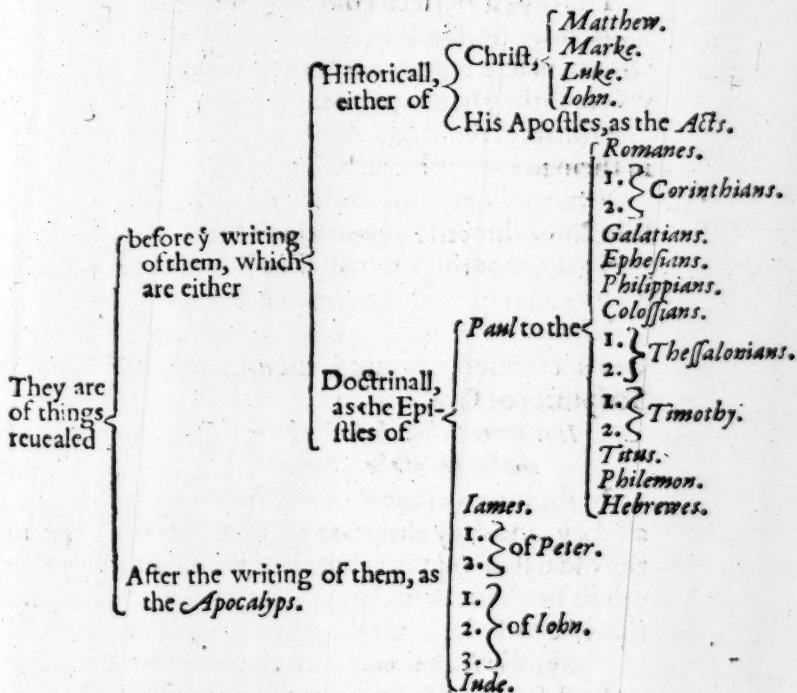 They are
of things
reuealed
before ẏ writing
of them, which
are either
Hiſtoricall,
either of
Chriſt,
Matthew.
Marke.
Luke.
Iohn.
His Apoſtles, as the Acts.
Doctrinall,
as the Epi-
ſtles of
Paul to the
Romanes.
1.
2.
Corinthians.
Galatians.
Epheſians.
Philippians.
Coloſſians.
1.
2.
Theſſalonians.
1.
2.
Timothy.
Titus.
Philemon.
Hebrewes.
Iames.
1.
2.
of Peter.
1.
2.
3.
of Iohn.
Iude.
After the writing of them, as
the Apocalyps.